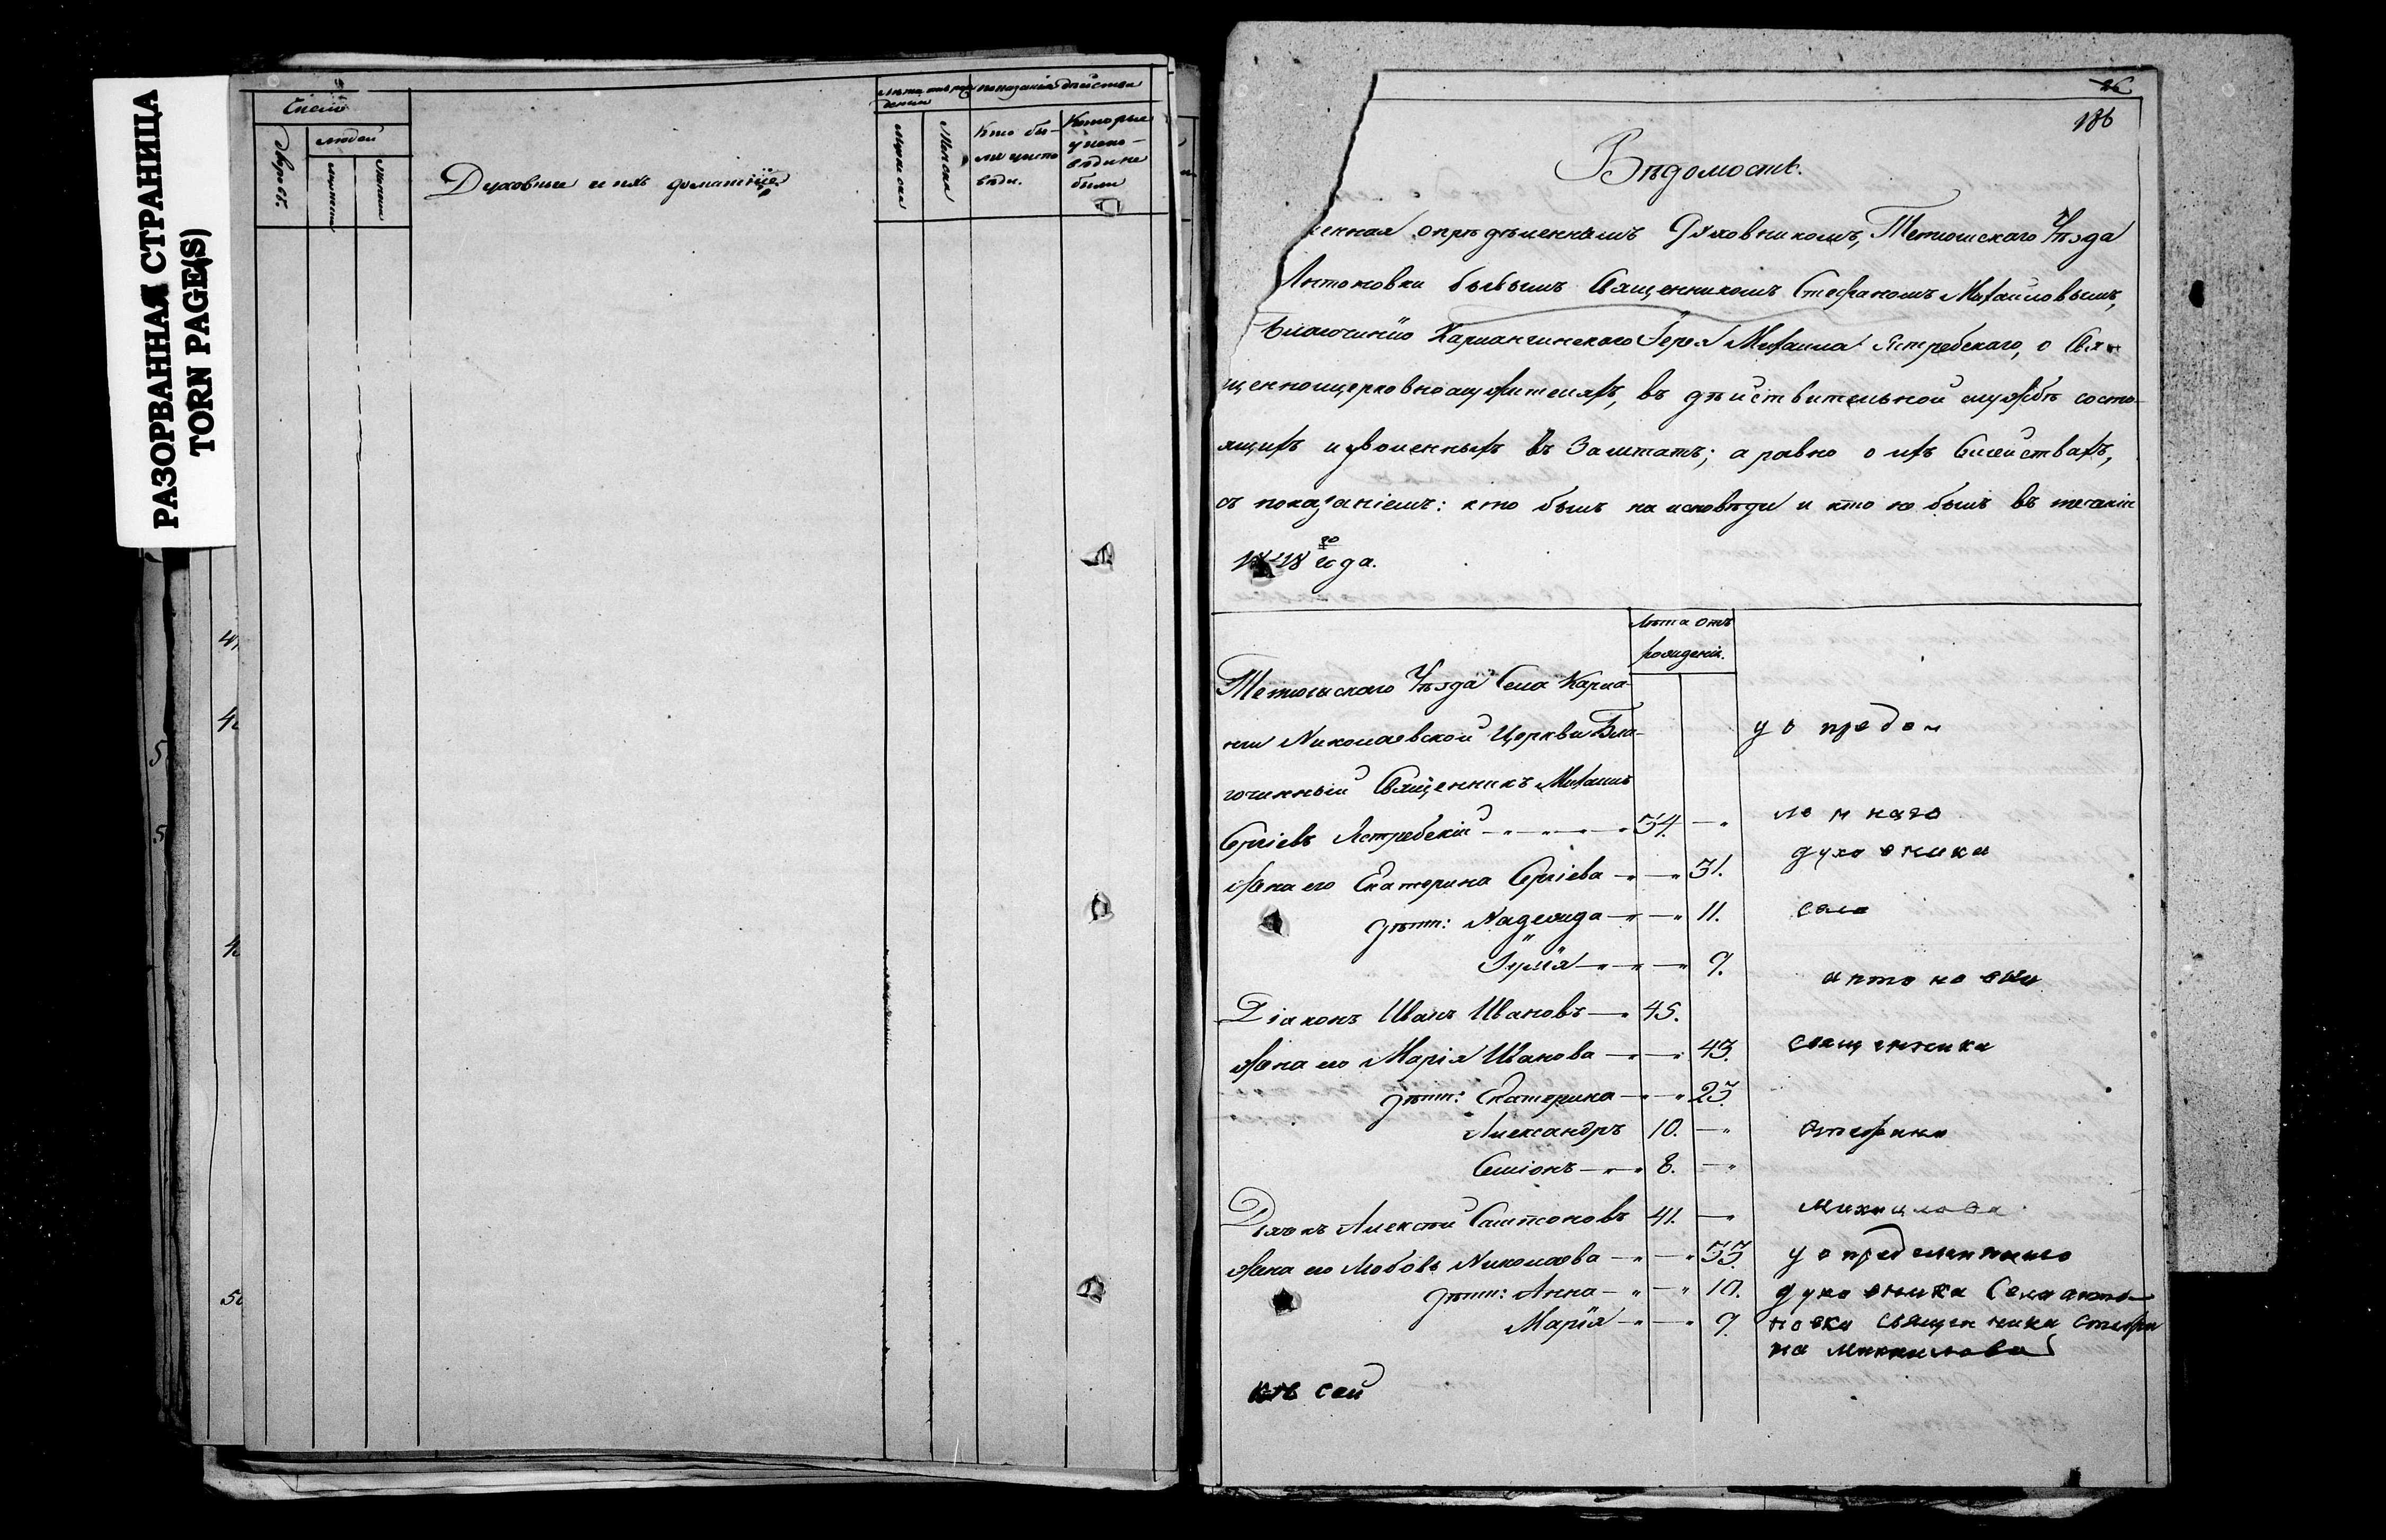 РАЗОРВАННАЯ СТРАНИЦА
TORN PAGE(S)
Число
дворовъ.
людей
мужеска
женска
Духовные и ихъ домашніе
Лѣта отъ рож
денія
мужеска
женска
показаніе дѣйства
Кто бы-
ли у испо
вѣди.
Которые
у испо-
вѣди не
были
26
186
Вѣдомость.
енная опредѣленнымъ Духовникомъ, Тетюшскаго Уѣзда
Антоновки бывшимъ Священникомъ Стефаномъ Михайловымъ,
Благочинію Карлангинскаго Іерея Михаила Ястребскаго, о Свя-
щенноцерковнослужителяхъ, въ дѣйствительной службѣ состо-
ящихъ и уволенныхъ въ Заштатъ; а равно о ихъ Семействахъ,
съ показаніемъ: кто былъ на исповѣди и кто не былъ въ теченіи
го года.
Лѣта отъ
рожденія.
Тетюшскаго Уѣзда Села Карла-
нги Николаевской Церкви Бла-
гочинный Священникъ Михаилъ
Сергіевъ Ястребскій 34.
Жена его Екатерина Сергіева 31.
Дѣти: Надежда 11.
Іулія 9.
Діаконъ Иванъ Ивановъ 45.
Жена его Марія Иванова 43.
Дѣти: Екатерина 23.
Александръ 10.
Симіонъ 8.
Дьячекъ Алексѣй Сампсоновъ 41.
Жена его Любовь Николаева 33.
Дѣти: Анна 10.
Марія 9.
у о предѣ
ле н наго
духо вника
села
анто но вки
священника
Стефана
Михаилова
у опредѣленнаго
духовника Села анто-
новки священника стефа
на михаилова
къ сей